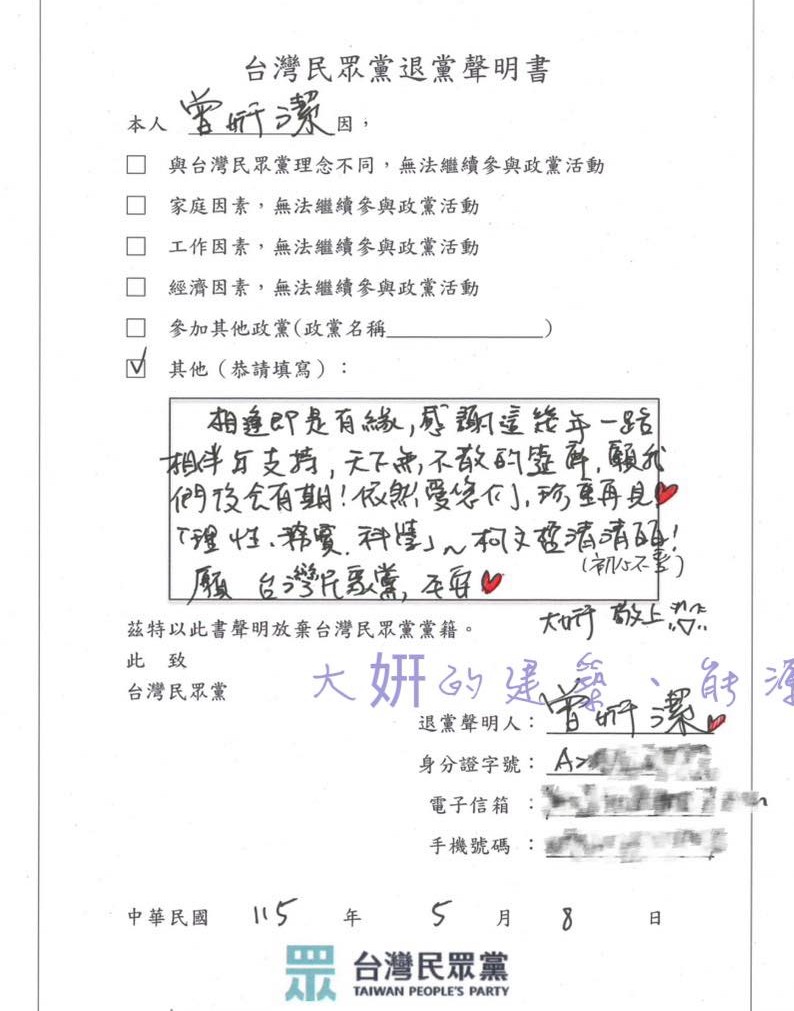 台灣民眾黨退黨聲明書
本人 曾妍潔 因，
□ 與台灣民眾黨理念不同，無法繼續參與政黨活動
□ 家庭因素，無法繼續參與政黨活動
□ 工作因素，無法繼續參與政黨活動
□ 經濟因素，無法繼續參與政黨活動
□ 參加其他政黨(政黨名稱______________)
☑ 其他（恭請填寫）：
相逢即是有緣，感謝這幾年一路
相伴與支持，天下無不散的筵席，願我
們後會有期！依然愛您們，珍重再見❤
「理性、務實、科學」~柯文哲清清白白！
(初心不變)
願 台灣民眾黨，平安❤
大妍 敬上
茲特以此書聲明放棄台灣民眾黨黨籍。
此 致
台灣民眾黨
大妍的建築、能源
退黨聲明人：曾妍潔❤
身分證字號：A2
電子信箱 ：
手機號碼 ：
中華民國 115 年 5 月 8 日
眾 台灣民眾黨
TAIWAN PEOPLE'S PARTY